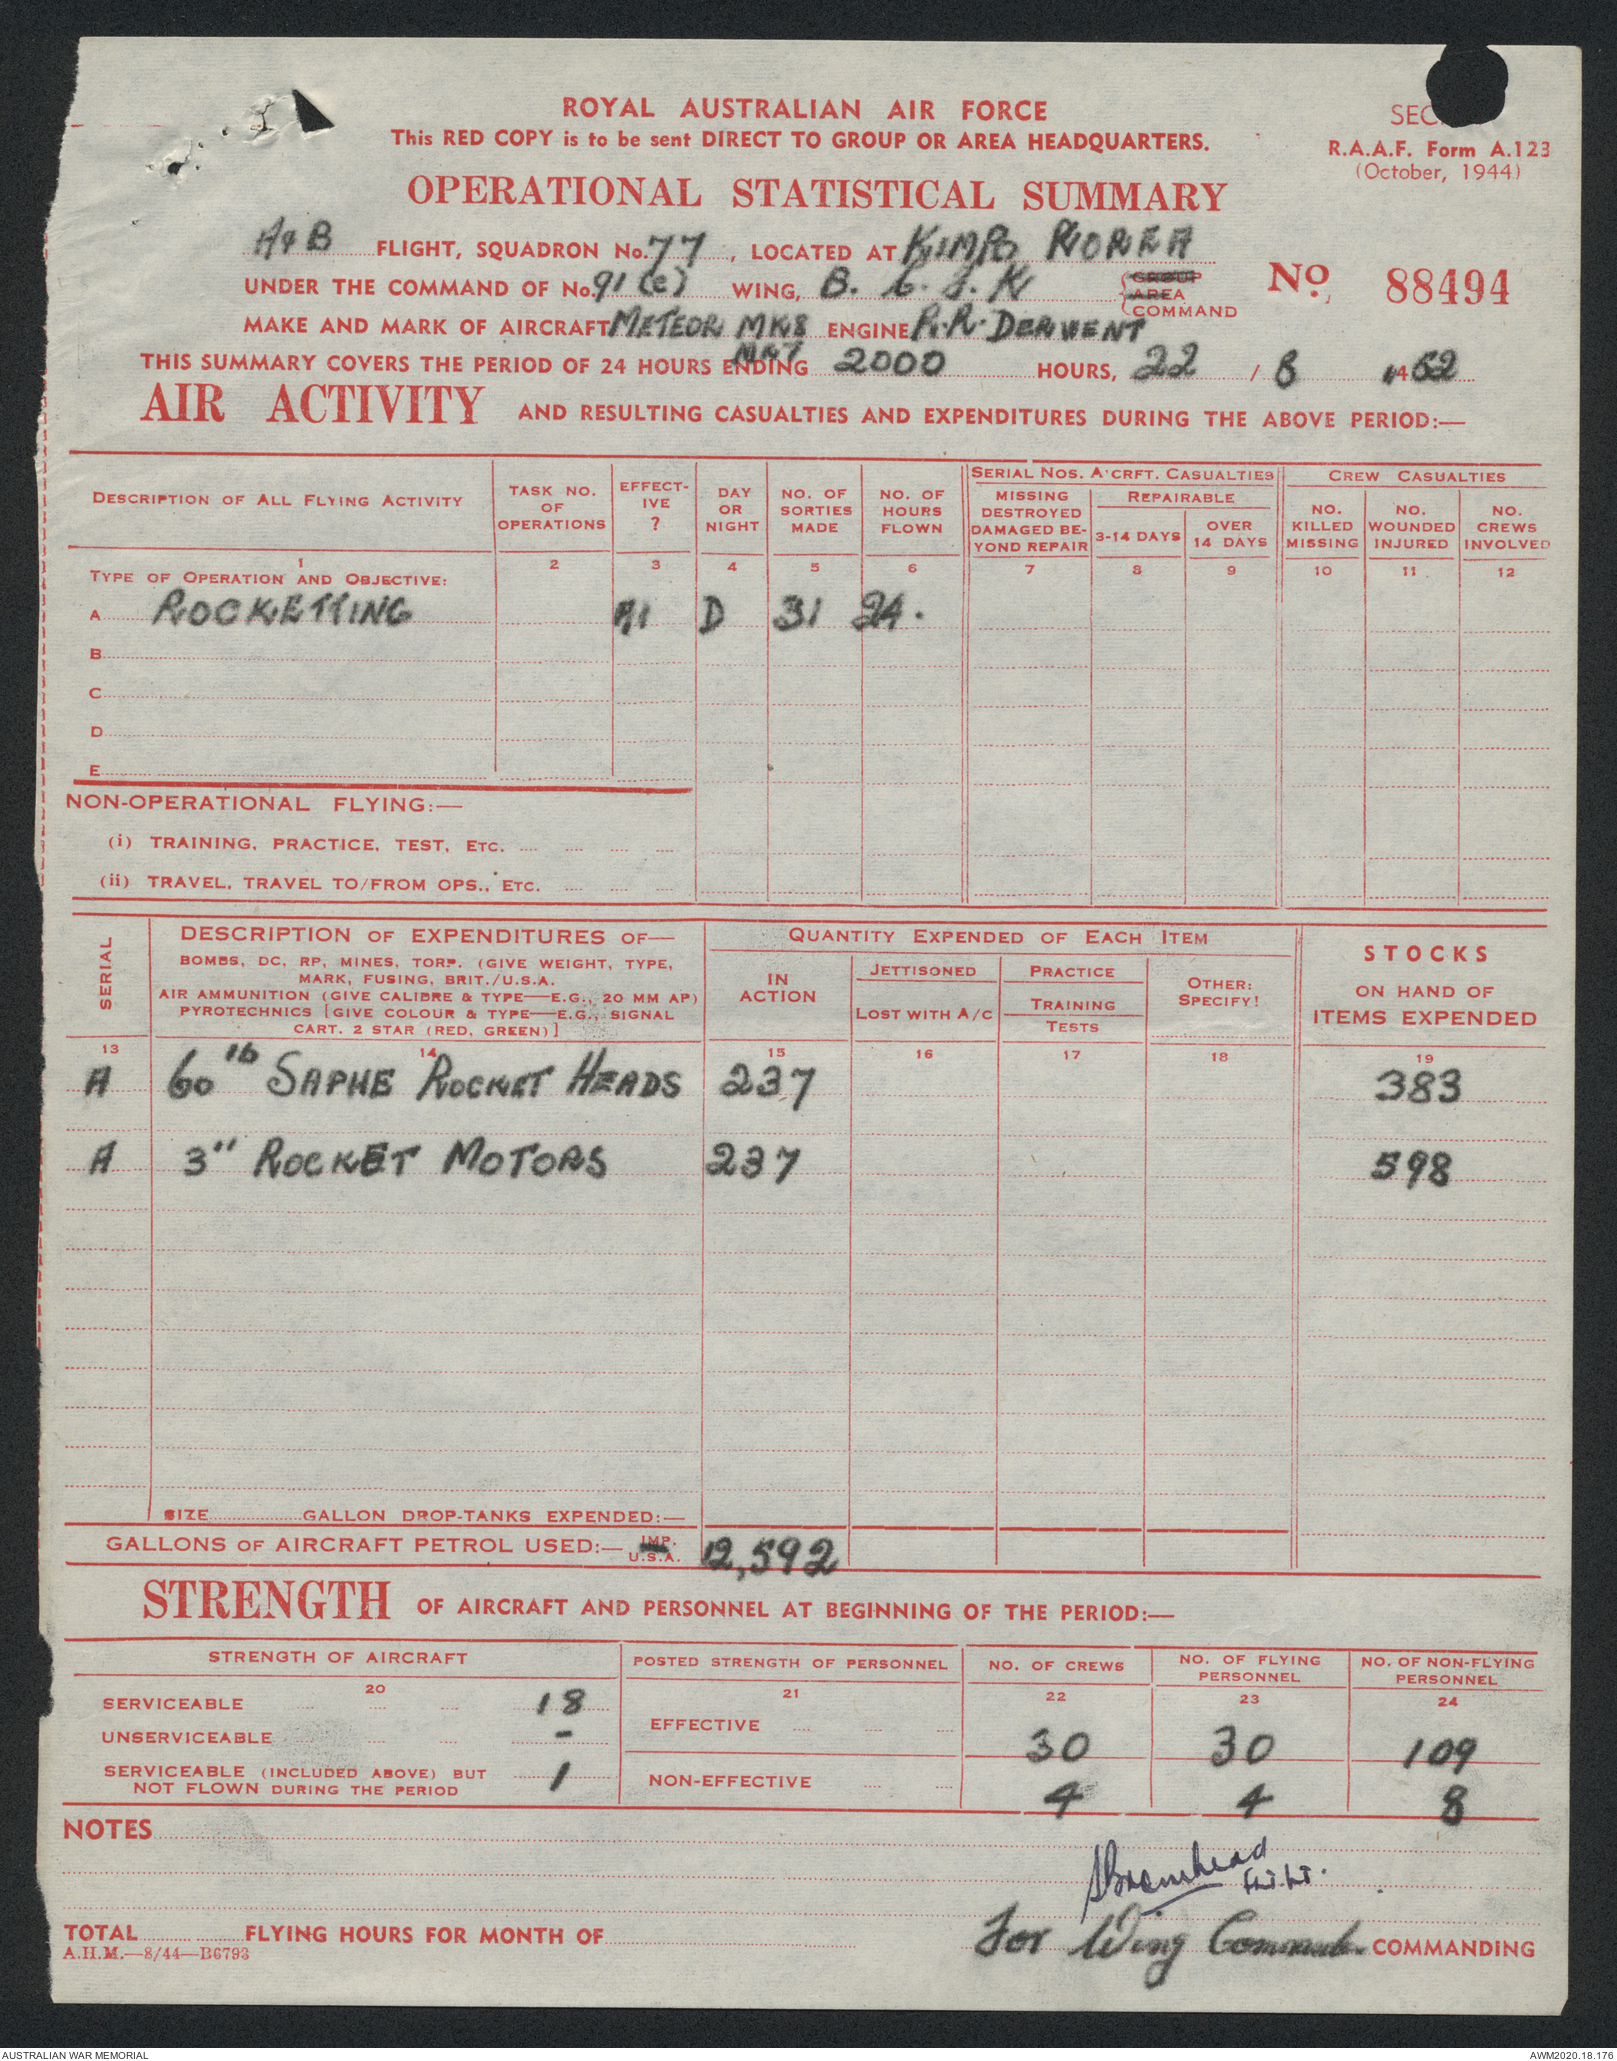 ROYAL AUSTRALIAN AIR FORCE
This RED COPY is to be sent DIRECT TO GROUP OR AREA HEADQUARTERS.
SEC
R.A.A.F. Form A.123
(October, 1944)
OPERATIONAL STATISTICAL SUMMARY
A & B FLIGHT, SQUADRON No. 77, LOCATED AT KIMPO KOREA
UNDER THE COMMAND OF No. 91 (c) WING, B. C. F. K GROUP AREA COMMAND
No. 88494
MAKE AND MARK OF AIRCRAFT METEOR MK8 ENGINE R.R. DERWENT MK7
THIS SUMMARY COVERS THE PERIOD OF 24 HOURS ENDING 2000 HOURS, 22 / 8 52
AIR ACTIVITY AND RESULTING CASUALTIES AND EXPENDITURES DURING THE ABOVE PERIOD:—
DESCRIPTION OF ALL FLYING ACTIVITY
TASK NO. OF OPERATIONS
EFFECTIVE ?
DAY OR NIGHT
NO. OF SORTIES MADE
NO. OF HOURS FLOWN
SERIAL NOS. A'CRFT. CASUALTIES
MISSING DESTROYED DAMAGED BEYOND REPAIR
REPAIRABLE
3-14 DAYS
OVER 14 DAYS
CREW CASUALTIES
NO. KILLED MISSING
NO. WOUNDED INJURED
NO. CREWS INVOLVED
1 2 3 4 5 6 7 8 9 10 11 12
TYPE OF OPERATION AND OBJECTIVE:
A ROCKETTING D 31 24.
B
C
D
E
NON-OPERATIONAL FLYING:—
(i) TRAINING, PRACTICE, TEST, ETC.
(ii) TRAVEL, TRAVEL TO/FROM OPS., ETC.
SERIAL
DESCRIPTION OF EXPENDITURES OF—
BOMBS, DC, RP, MINES, TORP. (GIVE WEIGHT, TYPE,
MARK, FUSING, BRIT./U.S.A.
AIR AMMUNITION (GIVE CALIBRE & TYPE—E.G., 20 MM AP)
PYROTECHNICS [GIVE COLOUR & TYPE—E.G., SIGNAL
CART. 2 STAR (RED, GREEN)]
QUANTITY EXPENDED OF EACH ITEM
IN ACTION
JETTISONED
LOST WITH A/C
PRACTICE
TRAINING
TESTS
OTHER: SPECIFY!
STOCKS
ON HAND OF
ITEMS EXPENDED
13 14 15 16 17 18 19
A 60 lb SAPHE ROCKET HEADS 237 383
A 3" ROCKET MOTORS 237 598
SIZE GALLON DROP-TANKS EXPENDED:—
GALLONS OF AIRCRAFT PETROL USED:— IMP. U.S.A. 12,592
STRENGTH OF AIRCRAFT AND PERSONNEL AT BEGINNING OF THE PERIOD:—
STRENGTH OF AIRCRAFT
POSTED STRENGTH OF PERSONNEL
NO. OF CREWS
NO. OF FLYING PERSONNEL
NO. OF NON-FLYING PERSONNEL
20 21 22 23 24
SERVICEABLE 18
UNSERVICEABLE -
SERVICEABLE (INCLUDED ABOVE) BUT NOT FLOWN DURING THE PERIOD 1
EFFECTIVE 30 30 109
NON-EFFECTIVE 4 4 8
NOTES
Flt. Lt.
For Wing Commander COMMANDING
TOTAL FLYING HOURS FOR MONTH OF
A.H.M.—8/44—B6793
AUSTRALIAN WAR MEMORIAL
AWM2020.18.176